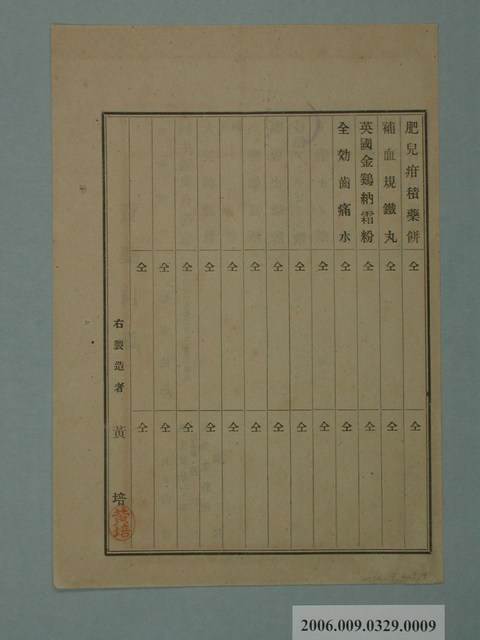 肥兒疳積藥餅 仝 仝
補血規鐵丸 仝 仝
英國金鷄納霜粉 仝 仝
全効齒痛水 仝 仝
仝 仝
仝 仝
仝 仝
仝 仝
仝 仝
仝 仝
仝 仝
仝 仝
右製造者 黃 培
黃培
2006.009.0329.0009